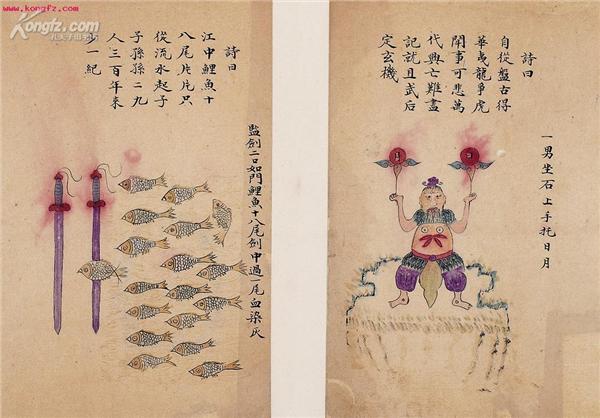 www.kongfz.com
Kongfz.com
一男坐石上手托日月
詩曰
自從盤古得
華夷龍爭虎
鬧事可悲萬
代興亡難盡
記就且武后
定玄機
監劍二口如門鯉魚十八尾劍中過一尾血染灰
詩曰
江中鯉魚十
八尾片片只
從流水起子
子孫孫二九
人三百年來
少一紀